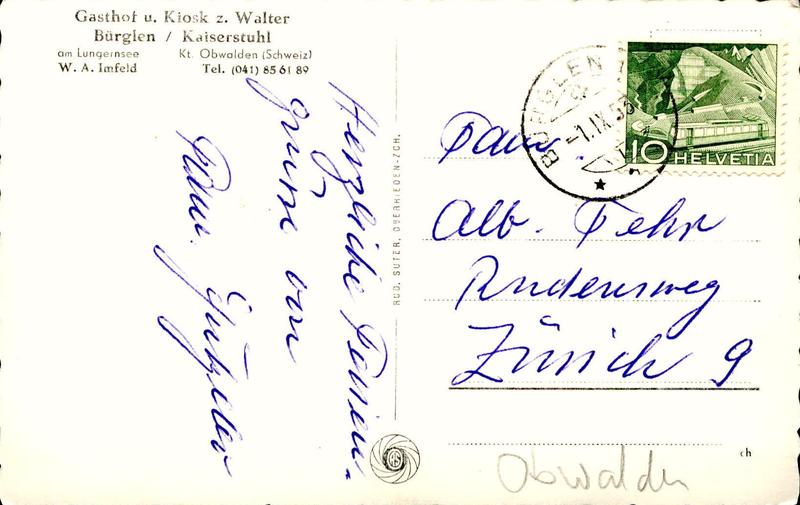 Gasthof u. Kiosk z. Walter
Bürglen / Kaiserstuhl
am Lungernsee Kt. Obwalden (Schweiz)
W. A. Imfeld Tel. (041) 85 61 89
Herzliche Ferien-
grüsse von
Fam.
RUD. SUTER, OBERRIEDEN-ZCH.
BÜRGLEN
-1.IX.53
10 HELVETIA
Fam.
Alb. Fehr
Rudensweg
Zürich 9
ch
Obwalden